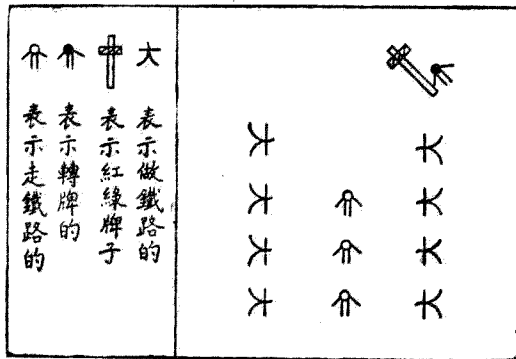 大表示做鐵路的
表示紅綠牌子
表示轉牌的
表示走鐵路的